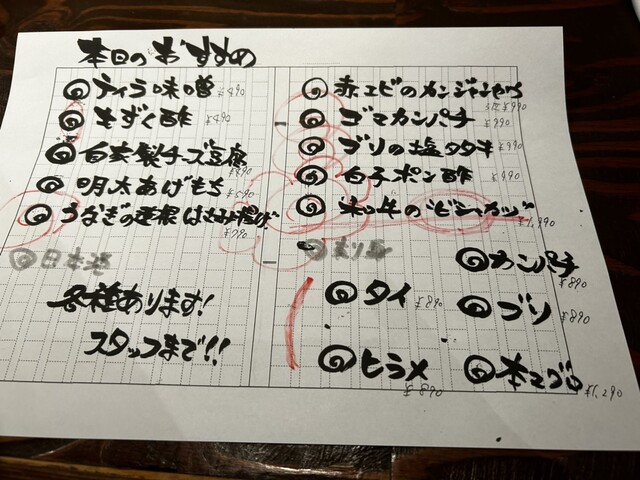 本日のおすすめ
ティラ味噌 ¥490
もずく酢 ¥490
自家製チーズ豆腐
明太あげもち ¥590
うなぎの蓮根はさみ揚げ
¥790
日本酒
各種あります!
スタッフまで!!
赤エビのカンジャンセウ
3尾¥990
ゴマカンパチ ¥990
ブリの塩タタキ ¥990
白子ポン酢 ¥990
和牛の"ビシカツ"
¥1,990
カンパチ
¥890
タイ ¥890
ブリ ¥890
ヒラメ
¥890
本マグロ
¥1,290